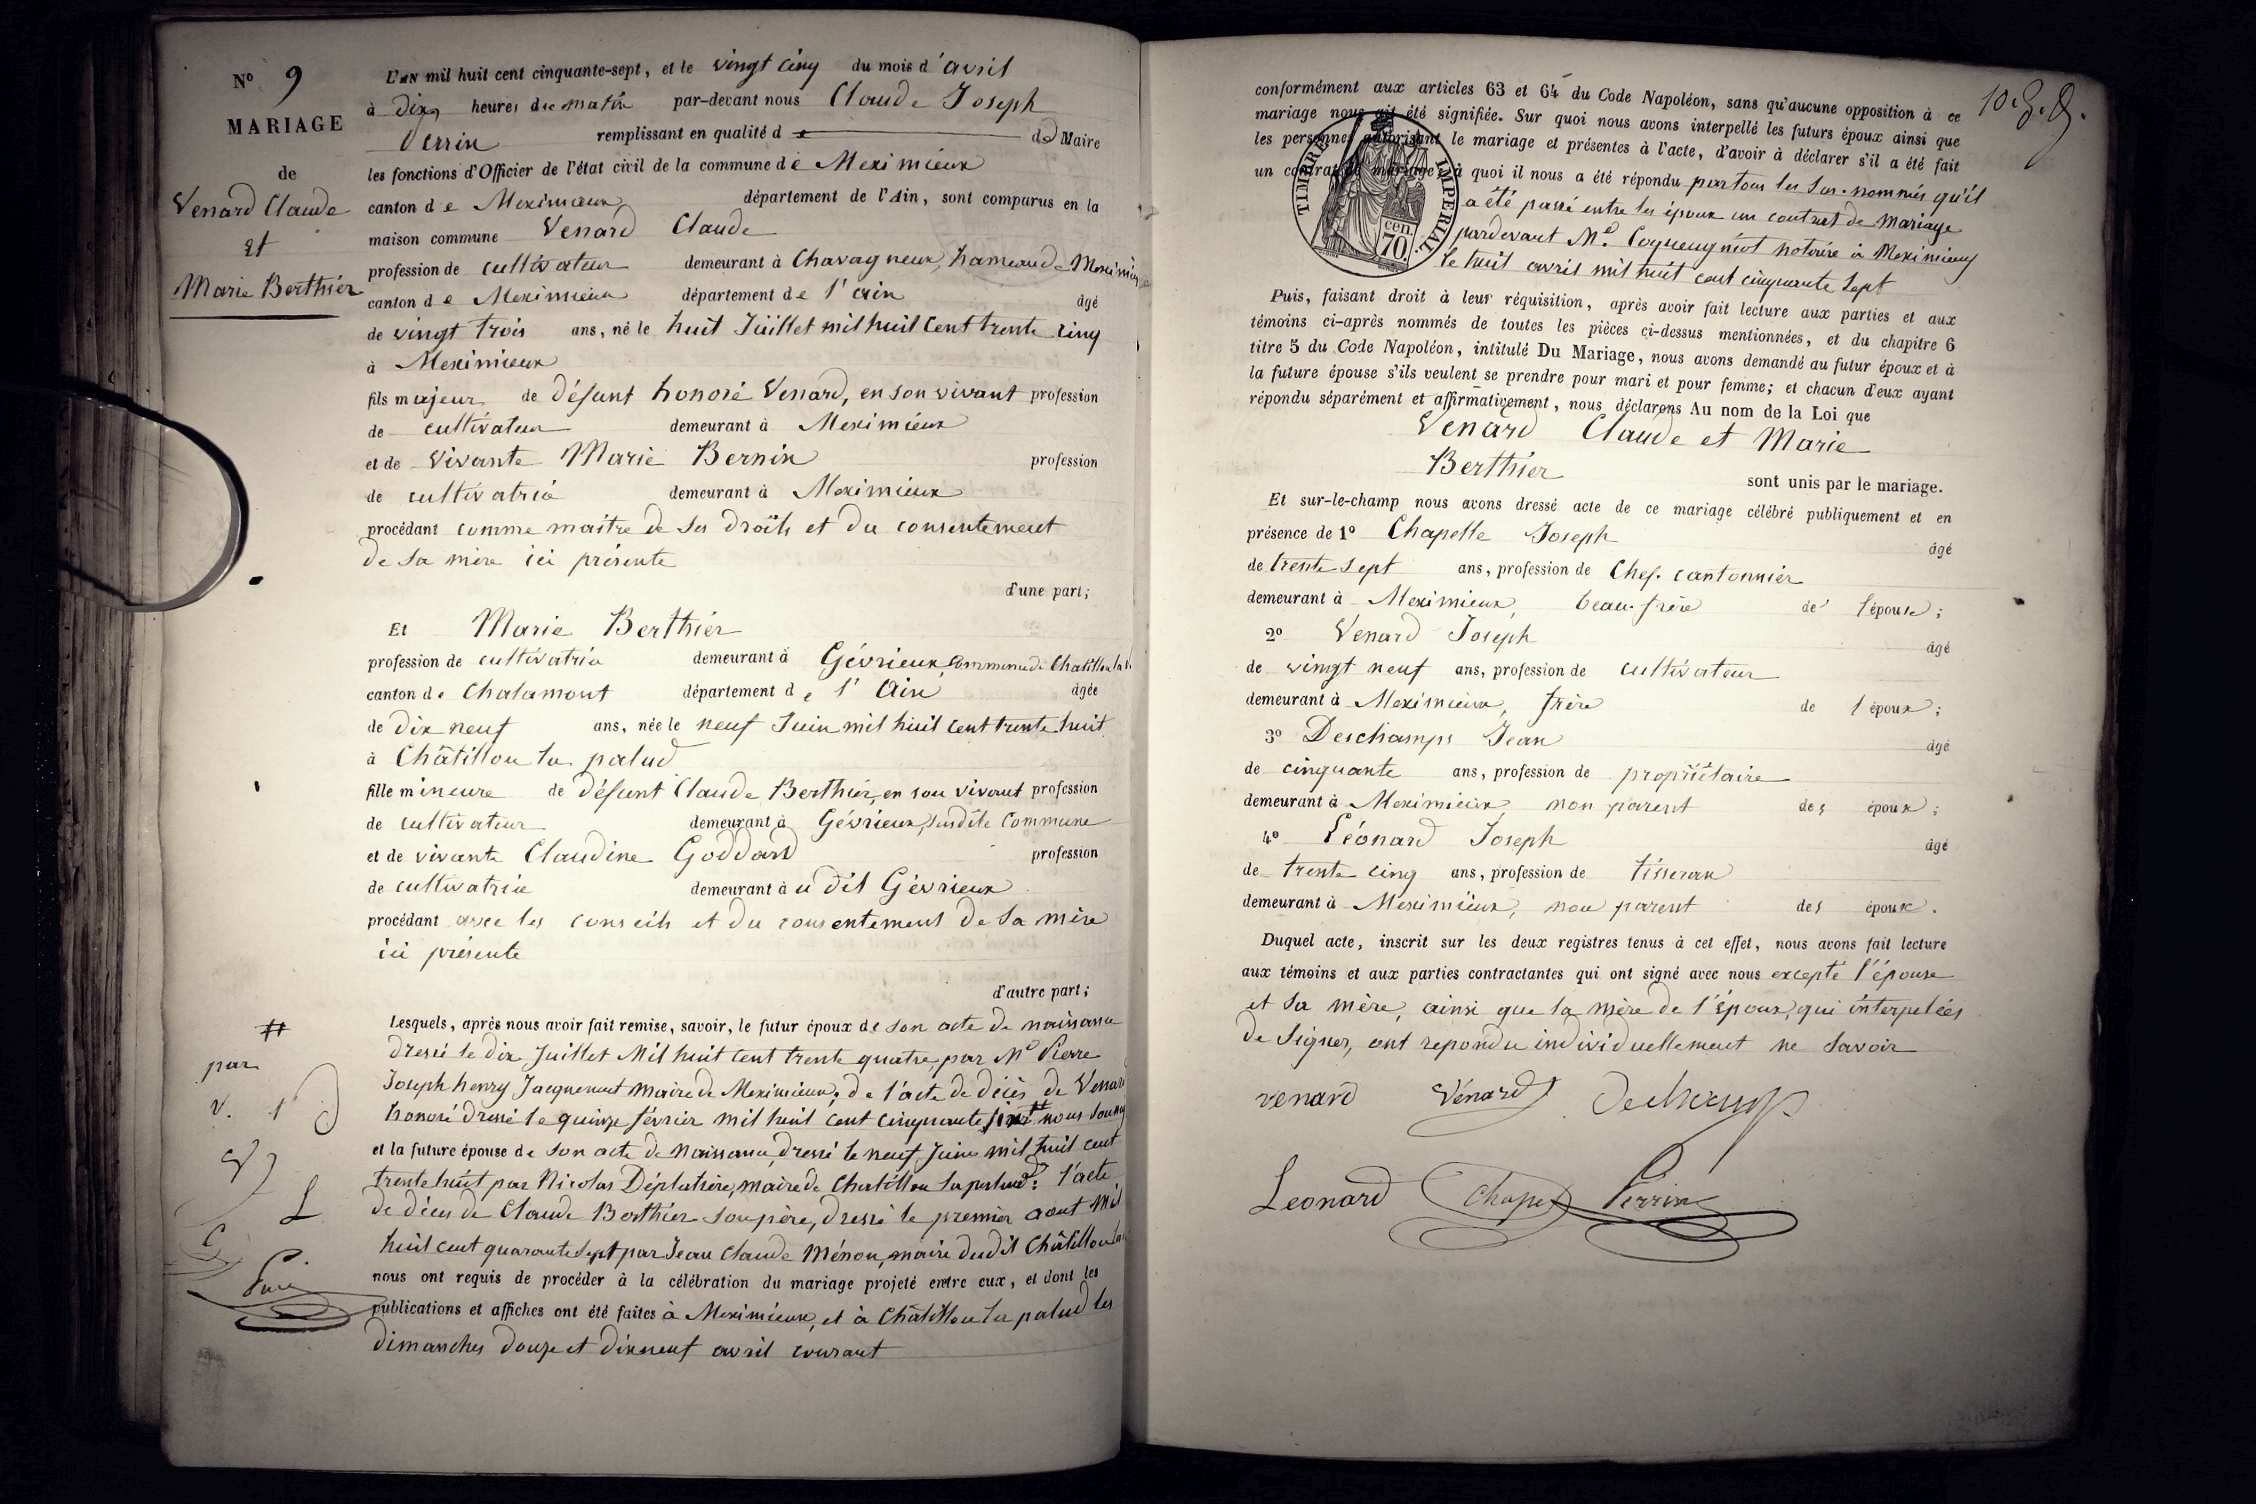 N° 9
MARIAGE
de
Venard Claude
et
Marie Berthier
L'AN mil huit cent cinquante-sept, et le vingt cinq du mois d'avril
à dix heures du matin par-devant nous Claude Joseph
Perrin remplissant en qualité de de Maire
les fonctions d'Officier de l'état civil de la commune de Meximieux
canton de Meximieux département de l'Ain, sont comparus en la
maison commune Venard Claude
profession de cultivateur demeurant à Chavagneux, hameau de Meximieux
canton de Meximieux département de l'ain âgé
de vingt trois ans, né le huit Juillet mil huit cent trente cinq
à Meximieux
fils majeur de défunt honoré Venard, en son vivant profession
de cultivateur demeurant à Meximieux
et de vivante Marie Bernin profession
de cultivatrice demeurant à Meximieux
procédant comme maitre de ses droits et du consentement
de sa mère ici présente
d'une part;
Et Marie Berthier
profession de cultivatrice demeurant à Gévrieux, commune de Chatillon la
canton de Chalamont département de l'Ain âgée
de dix neuf ans, née le neuf Juin mil huit cent trente huit
à Châtillon la palud
fille mineure de défunt Claude Berthier, en son vivant profession
de cultivateur demeurant à Gévrieux, susdite Commune
et de vivante Claudine Goddard profession
de cultivatrice demeurant à u dit Gévrieux
procédant avec les conseils et du consentement de sa mère
ici présente
d'autre part;
Lesquels, après nous avoir fait remise, savoir, le futur époux de son acte de naissance
dressé le dix Juillet Mil huit cent trente quatre, par Mr Pierre
Joseph henry Jacquemet maire de Meximieux; de l'acte de décès de Venard
honoré dressé le quinze février mil huit cent cinquante # nous soussig
et la future épouse de son acte de Naissance, dressé le neuf Juin mil huit cent
trente huit par Nicolas Déplatière, maire de Chatillon la palud: l'acte
de décès de Claude Berthier son père, dressé le premier aout Mil
huit cent quarante sept par Jean Claude Ménon, maire dudit Châtillon la
nous ont requis de procéder à la célébration du mariage projeté entre eux, et dont les
publications et affiches ont été faites à Meximieux, et à Châtillon la palud les
dimanches douze et dixneuf avril courant
#
par
v.
conformément aux articles 63 et 64 du Code Napoléon, sans qu'aucune opposition à ce
mariage nous ait été signifiée. Sur quoi nous avons interpellé les futurs époux ainsi que
les personnes autorisant le mariage et présentes à l'acte, d'avoir à déclarer s'il a été fait
un contrat de mariage; à quoi il nous a été répondu par tous les sus-nommés qu'il
a été passé entre les époux un contrat de Mariage
pardevant Me Coqueugniot notaire à Meximieux
le huit avril mil huit cent cinquante sept
TIMBRE IMPERIAL
70 cen.
Puis, faisant droit à leur réquisition, après avoir fait lecture aux parties et aux
témoins ci-après nommés de toutes les pièces ci-dessus mentionnées, et du chapitre 6
titre 5 du Code Napoléon, intitulé Du Mariage, nous avons demandé au futur époux et à
la future épouse s'ils veulent se prendre pour mari et pour femme; et chacun d'eux ayant
répondu séparément et affirmativement, nous déclarons Au nom de la Loi que
Venard Claude et Marie
Berthier
sont unis par le mariage.
Et sur-le-champ nous avons dressé acte de ce mariage célébré publiquement et en
présence de 1° Chapelle Joseph âgé
de trente sept ans, profession de Chef. cantonnier
demeurant à Meximieux, beau-frère de l'épouse;
2° Venard Joseph âgé
de vingt neuf ans, profession de cultivateur
demeurant à Meximieux, frère de l'époux;
3° Deschamps Jean âgé
de cinquante ans, profession de propriétaire
demeurant à Meximieux non parent des époux;
4° Léonard Joseph âgé
de trente cinq ans, profession de tisseran
demeurant à Meximieux, non parent des époux.
Duquel acte, inscrit sur les deux registres tenus à cet effet, nous avons fait lecture
aux témoins et aux parties contractantes qui ont signé avec nous excepté l'épouse
et sa mère, ainsi que la mère de l'époux, qui interpelées
de Signer, ont repondu individuellement ne Savoir
venard Vénard Dechamps
Leonard Chapel Perrin